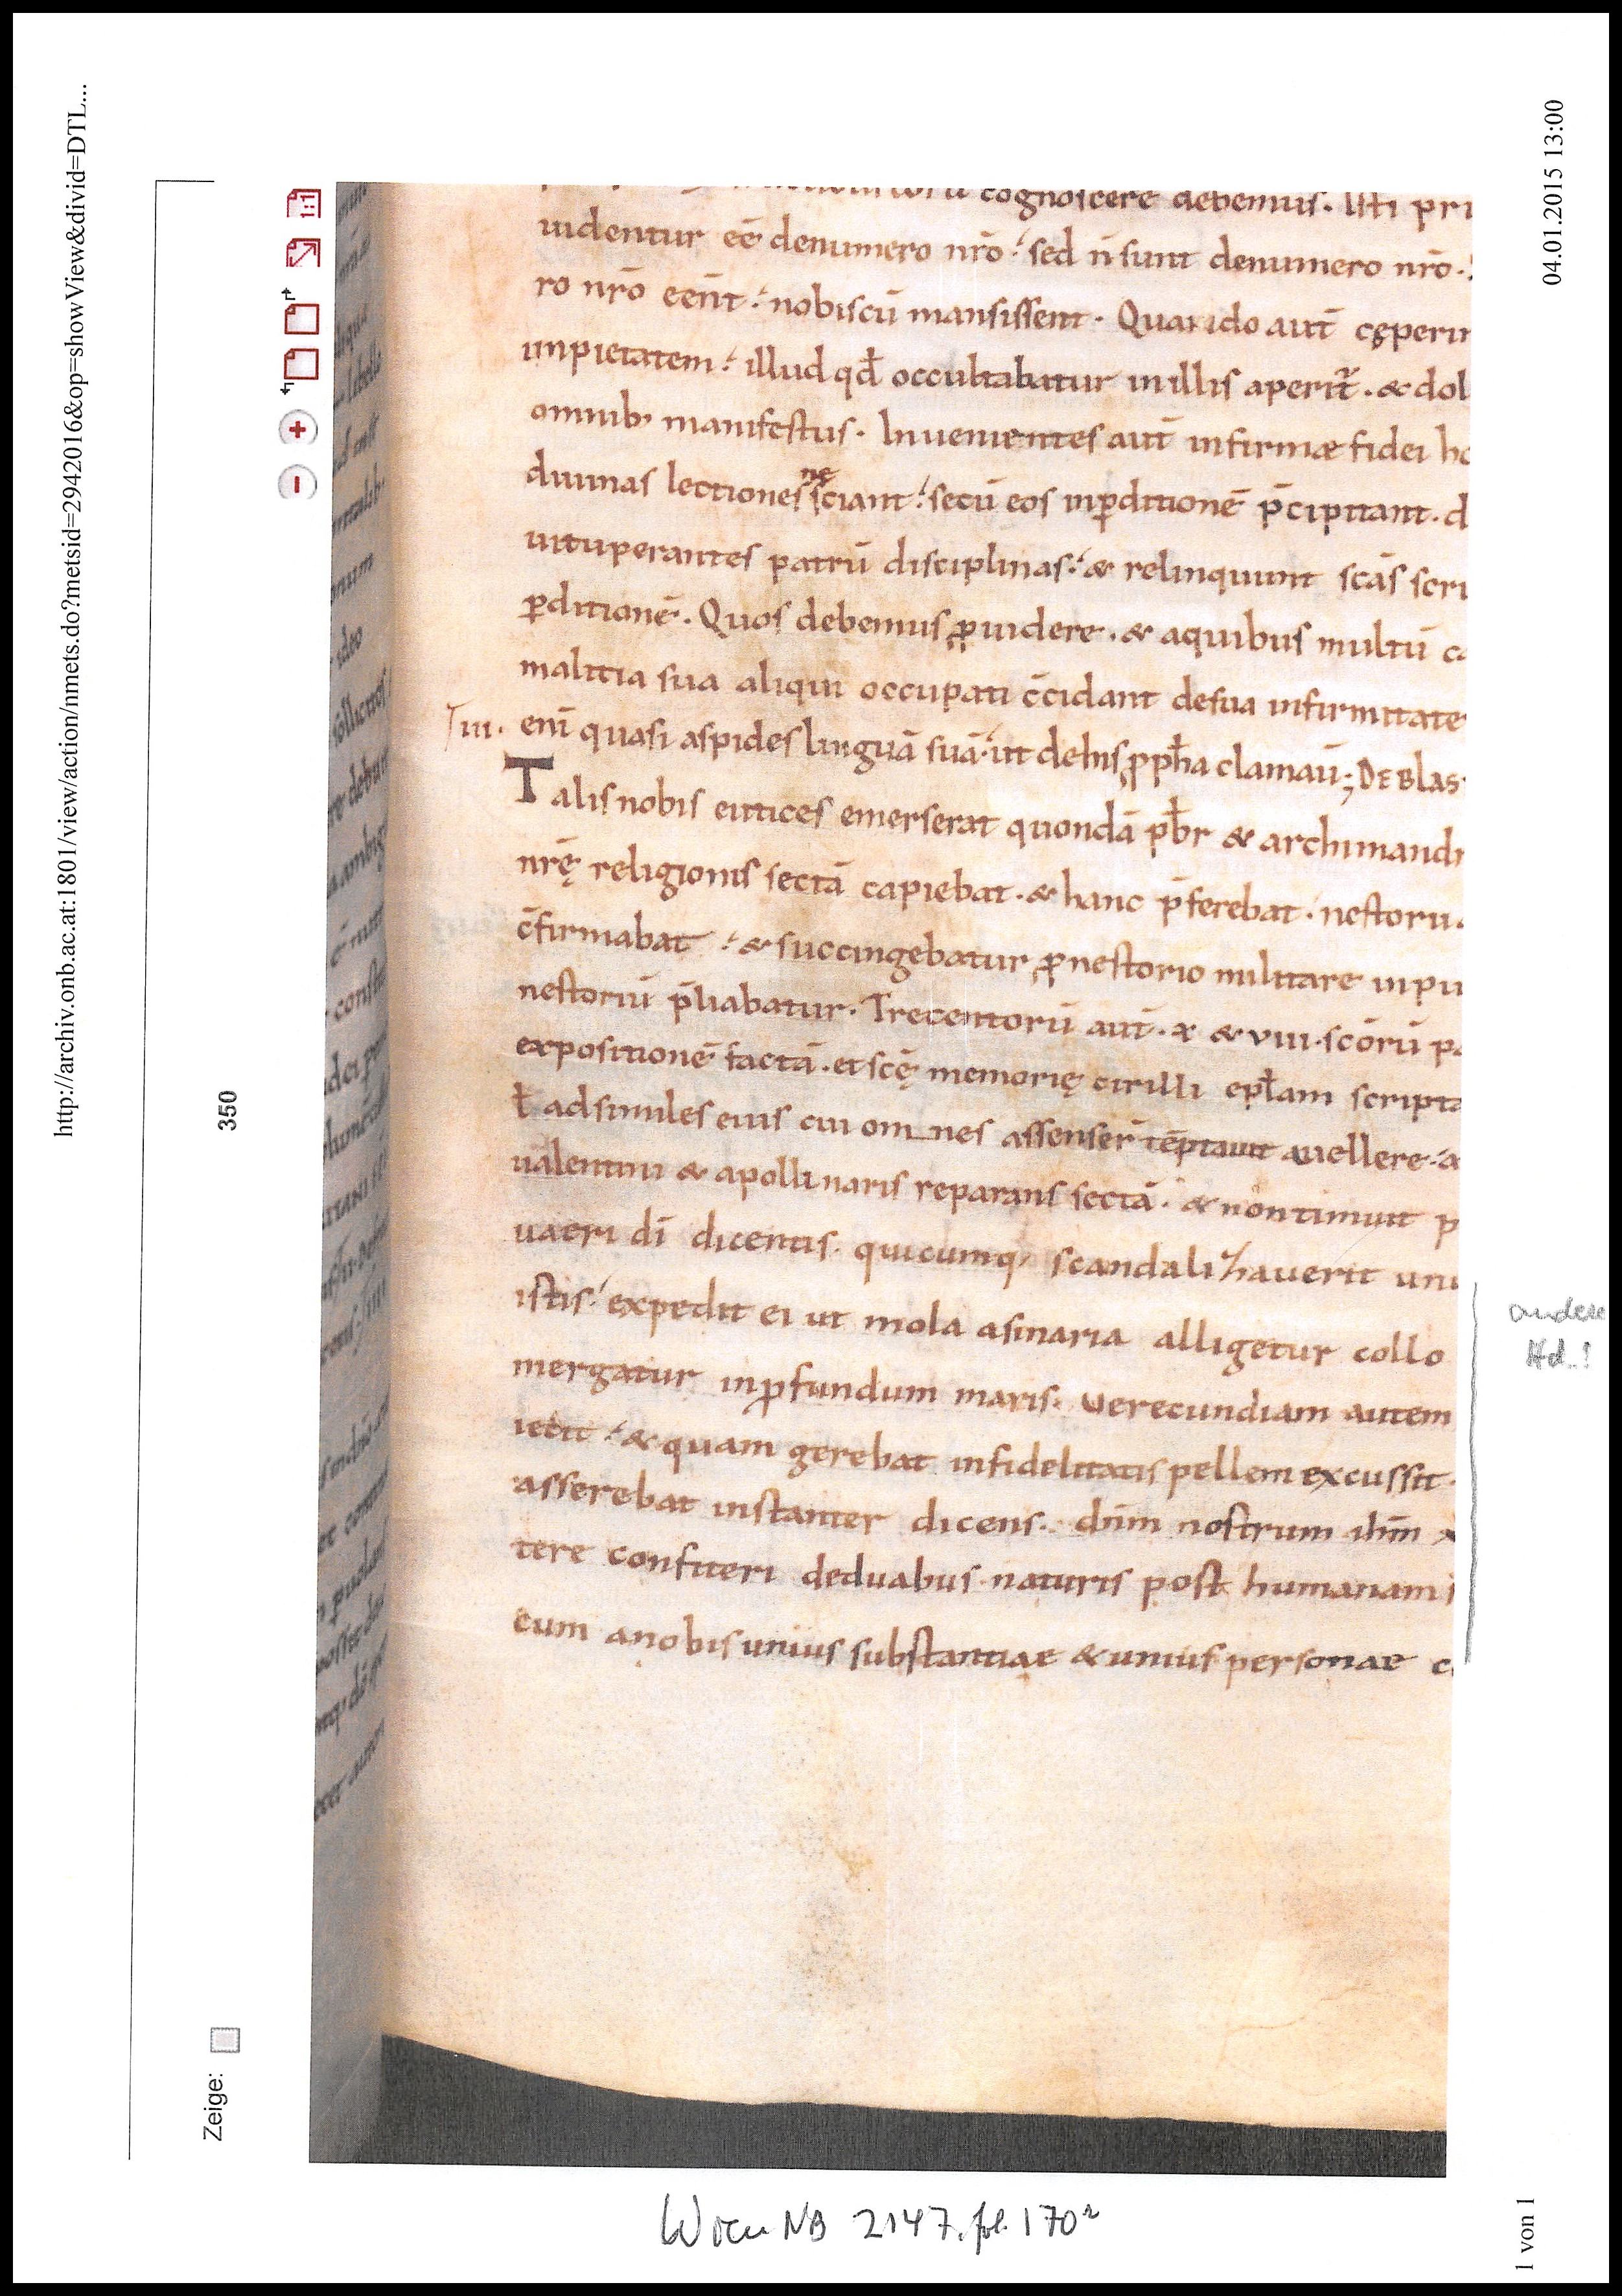 http://archiv.onb.ac.at:1801/view/action/nmets.do?metsid=2942016&op=showView&divid=DTL...
04.01.2015 13:00
350
Zeige:
1:1
cognoscere debemus. Isti pri
uidentur eē denumero nrō. sed n̄ sunt denumero nrō.
ro nrō eēnt. nobiscū mansissent. Quando aut̄ cęperin
impietatem. illud qđ occultabatur inillis aperit̄. & dol
omnib; manifestus. Inuenientes aut̄ infirmæ fidei ho
diuinas lectiones nęsciant. secū eos inꝑditionē p̄cipitant. d
uituperantes patrū disciplinas. & relinquunt scās scri
ꝑditionē. Quos debemus ꝓuidere. & aquibus multū ca
malitia sua aliqui occupati c̄cidant desua infirmitate
iii. enī quasi aspides linguā suā. ut dehis ꝓpħa clamaū; DE BLAS
Talis nobis eutices emerserat quondā pƀr & archimandr
nrę religionis sectā capiebat. & hanc p̄ferebat. nestoriu
c̄firmabat. & succingebatur ꝓ nestorio militare inpu
nestoriū p̄liabatur. Trecentorū aut̄. x & viii. scōrū pa
expositionē factā. et scę memorię cirilli epłam scripta
ł adsimiles eius cui omnes assenser̄ tēptauit auellere. a
ualentini & apollinaris reparans sectā. & nontimuit p
uaeri dī dicentis. quicumq; scandalizhauerit unu
istis. expedit ei ut mola asinaria alligetur collo
mergatur inꝓfundum maris. uerecundiam autem
iecit. & quam gerebat infidelitatis pellem excussit.
asserebat instanter dicens. dn̄m nostrum ih̄m x
tere confiteri deduabus naturis post humanam i
eum anobis unius substantiae & unius personae c
andere
Hd.!
Wien NB 2147, fol. 170r
1 von 1